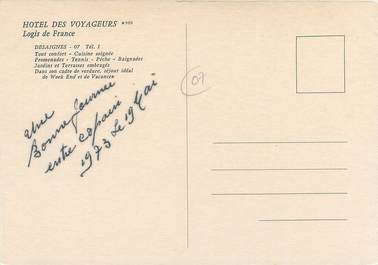 HOTEL DES VOYAGEURS ★ NN
Logis de France
DESAIGNES - 07 Tél. 3
Tout confort - Cuisine soignée
Promenades - Tennis - Pêche - Baignades
Jardins et Terrasses ombragés
Dans son cadre de verdure, séjour idéal
de Week End et de Vacances
07
Une
Bonne Journee
entre copain
1973 Le 19 Mai